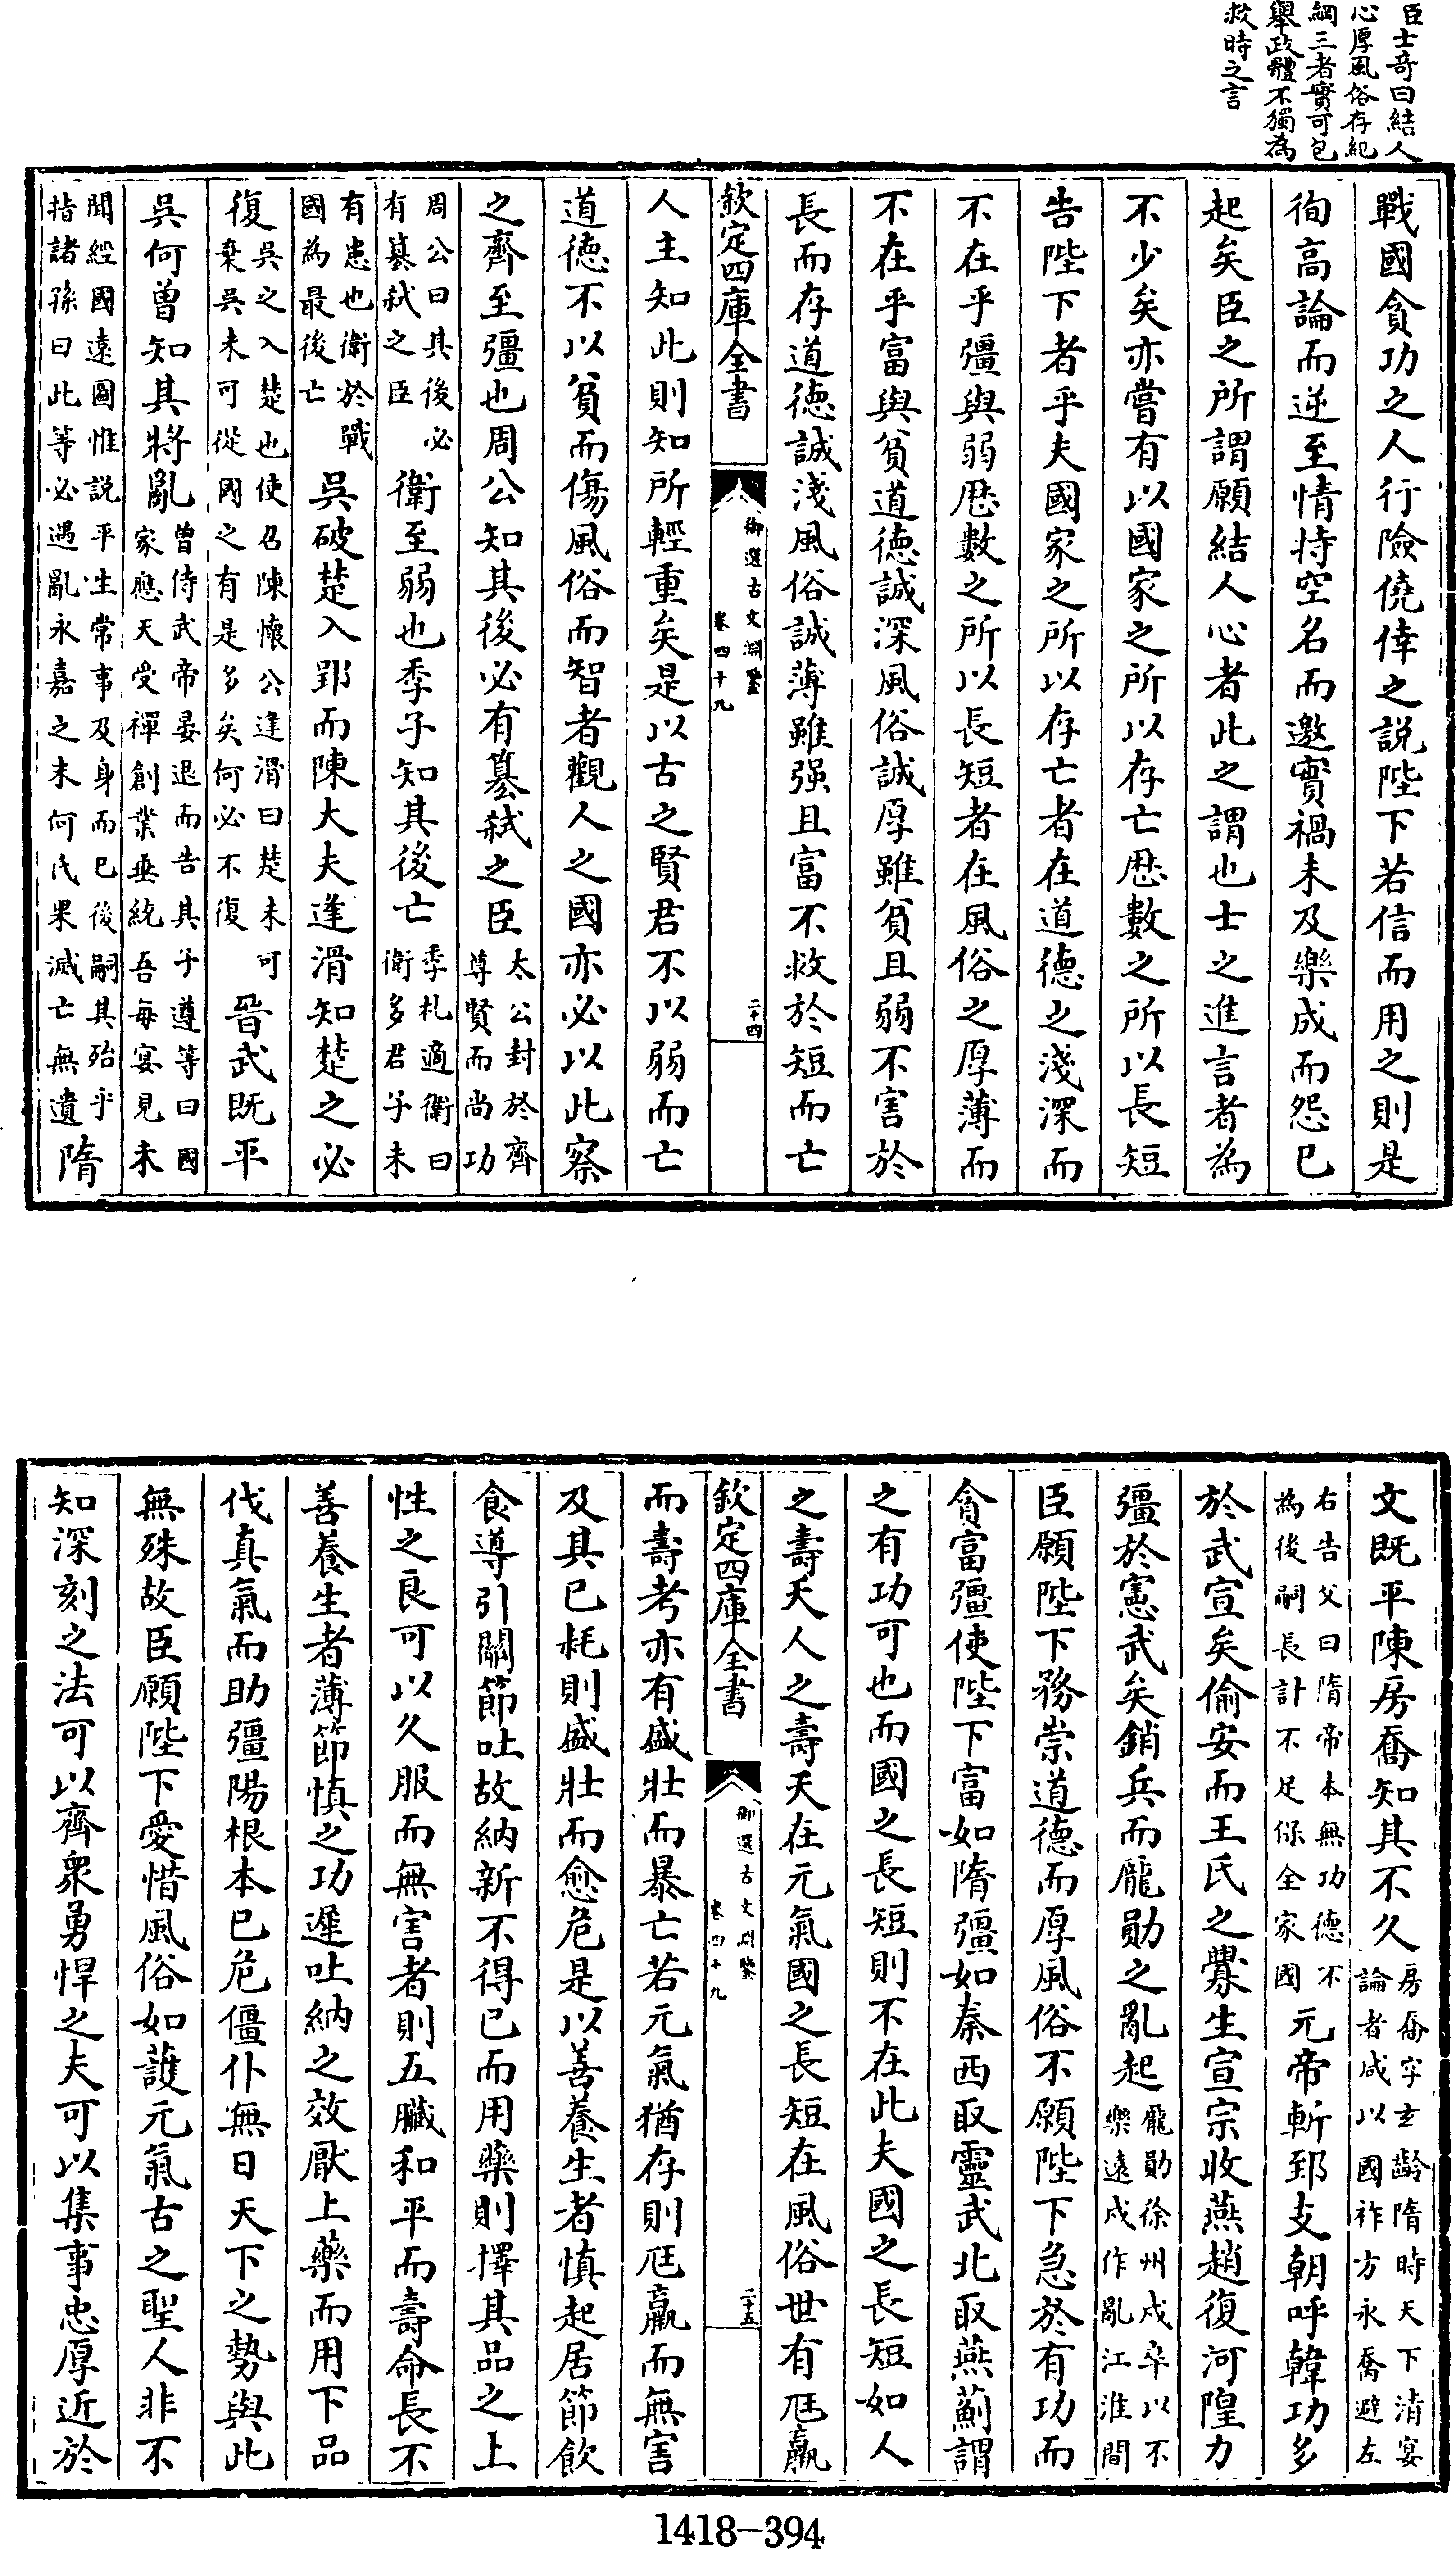 臣士竒曰結人
心厚風俗存紀
綱三者實可包
舉政體不獨為
救時之言
戰國貪功之人行險僥倖之説陛下若信而用之則是
徇高論而逆至情持空名而邀實禍未及樂成而怨已
起矣臣之所謂願結人心者此之謂也士之進言者為
不少矣亦嘗有以國家之所以存亡厯數之所以長短
告陛下者乎夫國家之所以存亡者在道徳之淺深而
不在乎彊與弱厯數之所以長短者在風俗之厚薄而
不在乎富與貧道徳誠深風俗誠厚雖貧且弱不害於
長而存道徳誠淺風俗誠薄雖强且富不救於短而亡
欽定四庫全書
御選古文淵鑒
卷四十九
二十四
人主知此則知所輕重矣是以古之賢君不以弱而亡
道徳不以貧而傷風俗而智者觀人之國亦必以此察
之齊至彊也周公知其後必有簒弑之臣太公封於齊
尊賢而尚功
周公曰其後必
有簒弑之臣衛至弱也季子知其後亡季札適衛曰
衛多君子未
有患也衛於戰
國為最後亡吳破楚入郢而陳大夫逢滑知楚之必
復吳之入楚也使召陳懐公逢滑曰楚未可
棄吳未可從國之有是多矣何必不復晉武既平
吳何曾知其將亂曾侍武帝宴退而告其子遵等曰國
家應天受禪創業垂統吾每宴見未
聞經國遠圖惟説平生常事及身而已後嗣其殆乎
指諸孫曰此等必遇亂永嘉之末何氏果滅亡無遺隋
文既平陳房喬知其不久房喬字玄齡隋時天下清宴
論者咸以國祚方永喬避左
右告父曰隋帝本無功徳不
為後嗣長計不足保全家國元帝斬郅支朝呼韓功多
於武宣矣偷安而王氏之釁生宣宗收燕趙復河隍力
彊於憲武矣銷兵而龐勛之亂起龐勛徐州戍卒以不
樂遠戍作亂江淮間
臣願陛下務崇道徳而厚風俗不願陛下急於有功而
貪富彊使陛下富如隋彊如秦西取靈武北取燕薊謂
之有功可也而國之長短則不在此夫國之長短如人
之壽夭人之壽夭在元氣國之長短在風俗世有尫羸
欽定四庫全書
御選古文淵鑒
卷四十九
二十五
而壽考亦有盛壯而暴亡若元氣猶存則尫羸而無害
及其已耗則盛壯而愈危是以善養生者慎起居節飲
食導引關節吐故納新不得已而用藥則擇其品之上
性之良可以久服而無害者則五臟和平而壽命長不
善養生者薄節慎之功遲吐納之效厭上藥而用下品
伐真氣而助彊陽根本已危僵仆無日天下之勢與此
無殊故臣願陛下愛惜風俗如護元氣古之聖人非不
知深刻之法可以齊衆勇悍之夫可以集事忠厚近於
1418—394